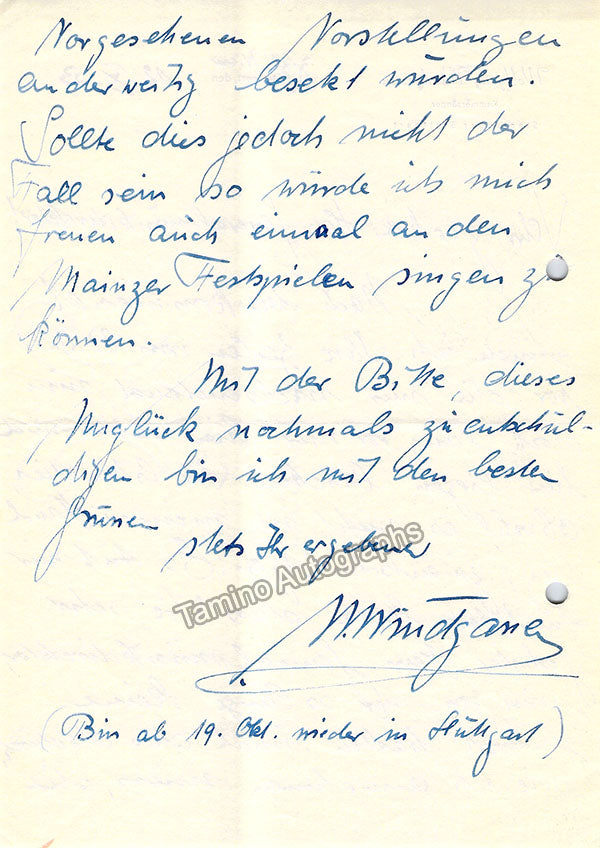 Vorgesehenen Vorstellungen
anderweitig besetzt würden.
Sollte dies jedoch nicht der
Fall sein so würde ich mich
freuen auch einmal an den
Mainzer Festspielen singen zu
können.
Mit der Bitte, dieses
Unglück nochmals zu entschul-
digen bin ich mit den besten
Grüssen
stets Ihr ergebener
W. Windgassen
(Bin ab 19. Okt. wieder in Stuttgart)
Tamino Autographs